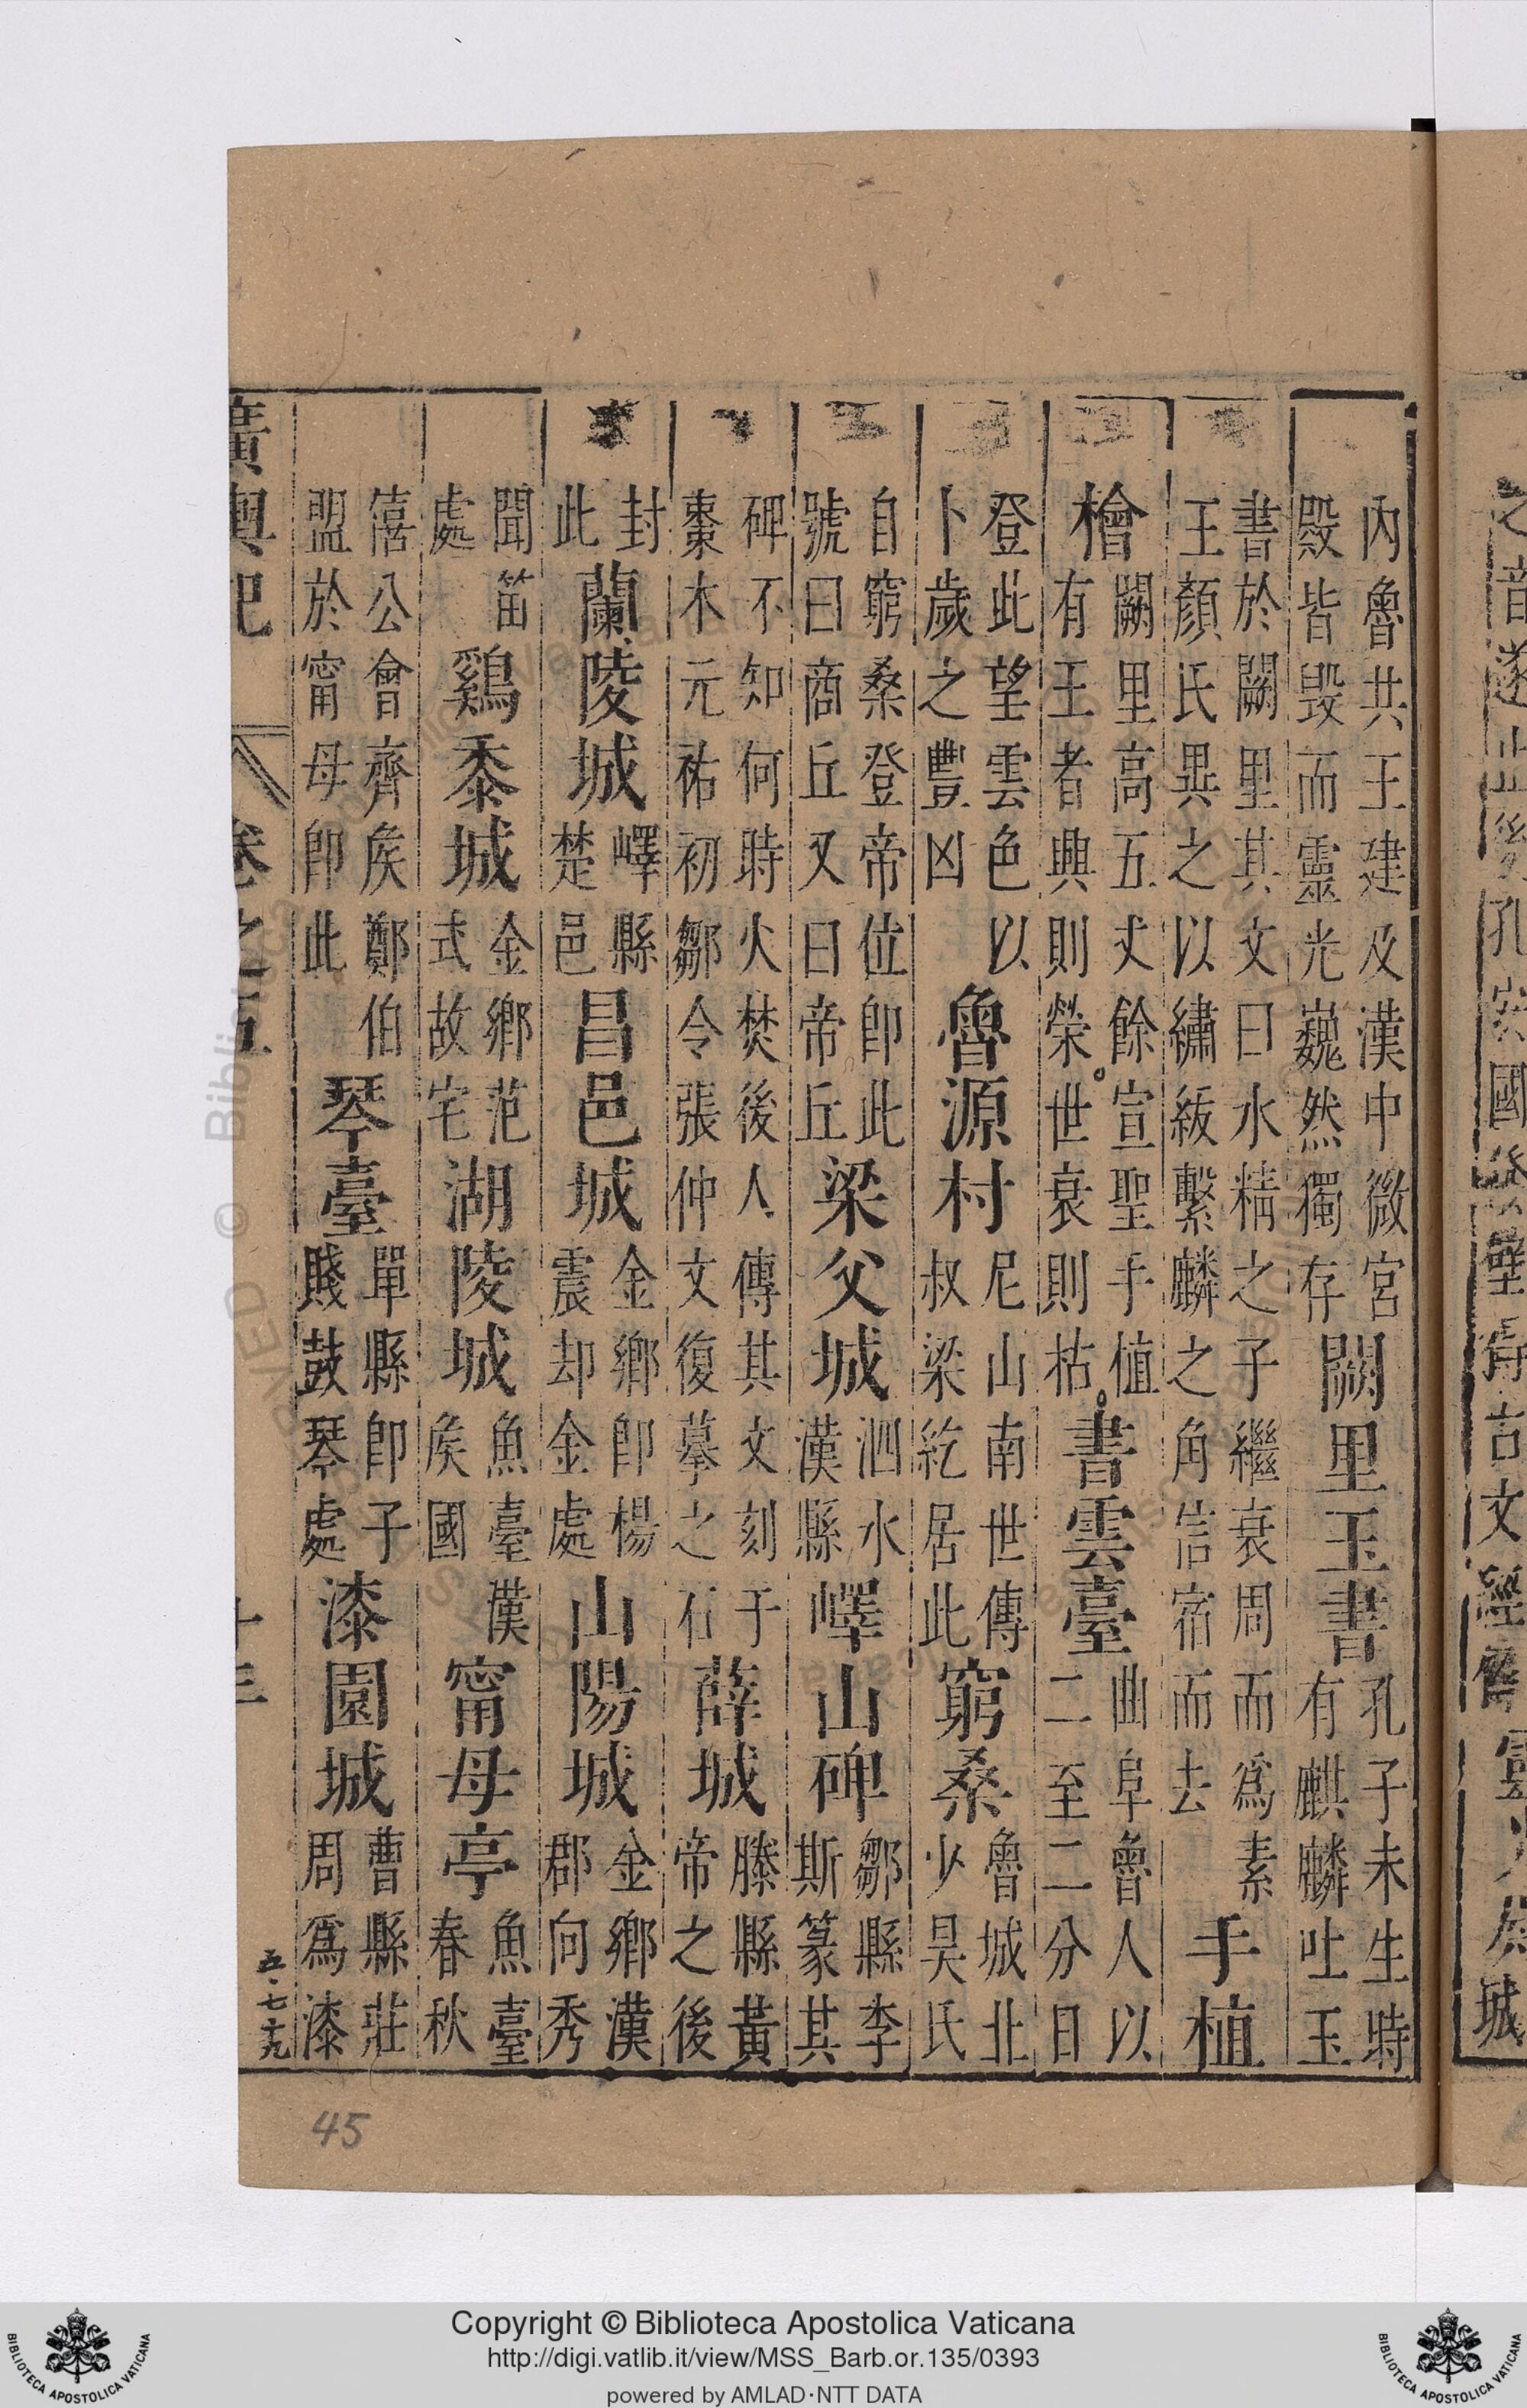 內魯共王建及漢中微宮
殿皆毀而靈光巍然獨存
闕里玉書
孔子未生時
有麒麟吐玉
書於闕里其文曰水精之子繼衰周而為素
王顏氏異之以繡紱繫麟之角信宿而去
手植
檜
闕里高五丈餘宣聖手植
有王者興則榮世衰則枯
書雲臺
曲阜魯人以
二至二分日
登此望雲色以
卜歲之豐凶
魯源村
尼山南世傳
叔梁紇居此
窮桑
魯城北
少昊氏
自窮桑登帝位卽此
號曰商丘又曰帝丘
梁父城
泗水
漢縣
嶧山碑
鄒縣李
斯篆其
碑不知何時火焚後人傳其文刻于
棗木元祐初鄒令張仲文復摹之石
薛城
滕縣黃
帝之後
封
此
蘭陵城
嶧縣
楚邑
昌邑城
金鄉卽楊
震却金處
山陽城
金鄉漢
郡向秀
聞笛
處
鷄黍城
金鄉范
式故宅
湖陵城
魚臺漢
矦國
甯母亭
魚臺
春秋
僖公會齊矦鄭伯
盟於甯母卽此
琴臺
單縣卽子
賤鼓琴處
漆園城
曹縣莊
周為漆
廣輿記
卷之五
五·七十九
45
Copyright © Biblioteca Apostolica Vaticana
http://digi.vatlib.it/view/MSS_Barb.or.135/0393
powered by AMLAD·NTT DATA
BIBLIOTECA APOSTOLICA VATICANA
BIBLIOTECA APOSTOLICA VATICANA